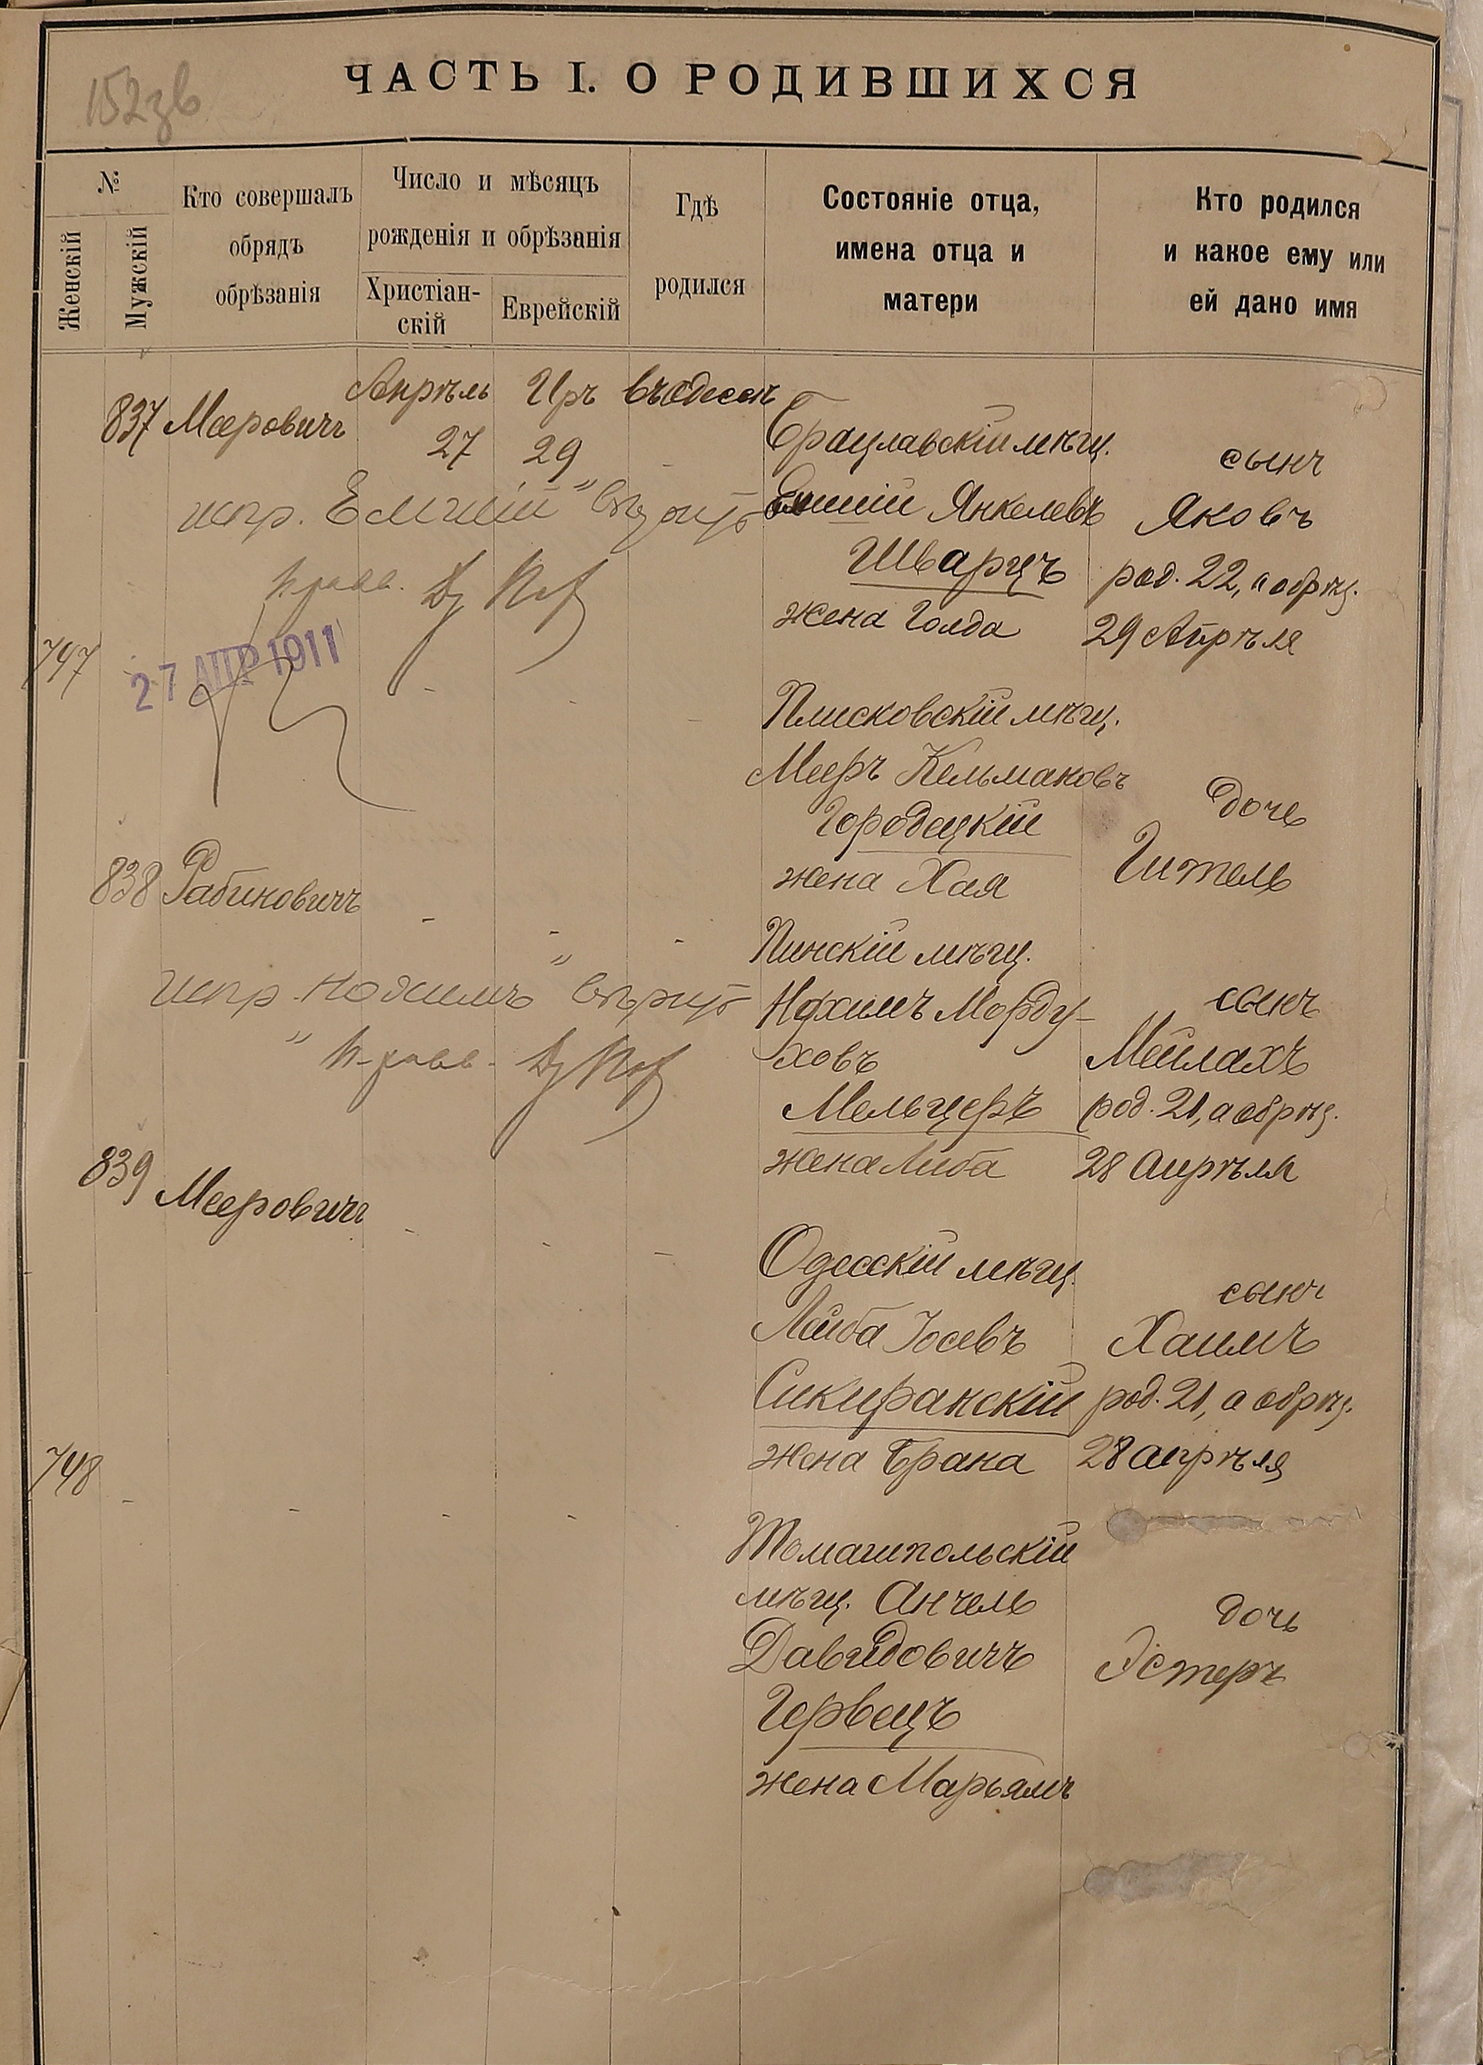 152зв
ЧАСТЬ I. О РОДИВШИХСЯ
№
Женскій
Мужскій
Кто совершалъ
обрядъ
обрѣзанія
Число и мѣсяцъ
рожденія и обрѣзанія
Христіан-
скій
Еврейскій
Гдѣ
родился
Состояніе отца,
имена отца и
матери
Кто родился
и какое ему или
ей дано имя
Апрѣль Иръ въ Одессѣ
837 Мееровичъ 27 29 Брацлавскій мѣщ. сынъ
испр. вѣрить
Янкелевъ Яковъ
Шварцъ род. 22, а обрѣз.
жена Голда 29 Апрѣля
747
27 АПР 1911
Плисковскій мѣщ.
Мееръ Кельмановъ
Городецкій дочь
жена Хая Гитель
838 Рабиновичъ
Пинскій мѣщ.
испр. Нохимъ вѣрить
НохимъМорду- сынъ
ховъ Мейлахъ
Мельцеръ род. 21, а обрѣз.
жена Либа 28 апрѣля
839 Мееровичъ
Одесскій мѣщ. сынъ
Лейба Іосевъ Хаимъ
Сикиранскій род. 21, а обрѣз.
жена Брана 28 апрѣля
748
Томашпольскій
мѣщ. Анчель дочь
Давидовичъ Эстеръ
Гервецъ
жена Марьямъ